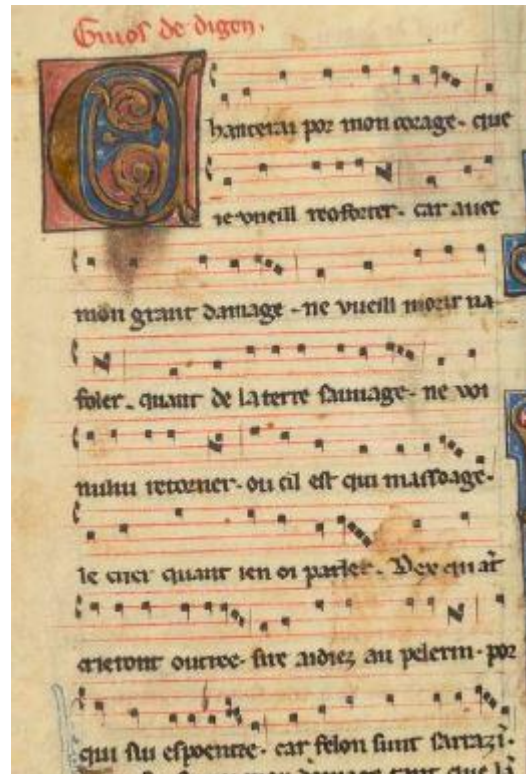 Guios de digon.
Chanterai por mon corage. que
ie vueill reconforter. car auec
mon grant damage. ne vueill morir na
foler. quant de la terre sauuage. ne voi
nului retorner. ou cil est qui
le cuer quant ien oi parler. Dex quāt
crieront outree. sire aidiez au pelerin. por
qui sui espoentee. car felon sunt sarrazī.